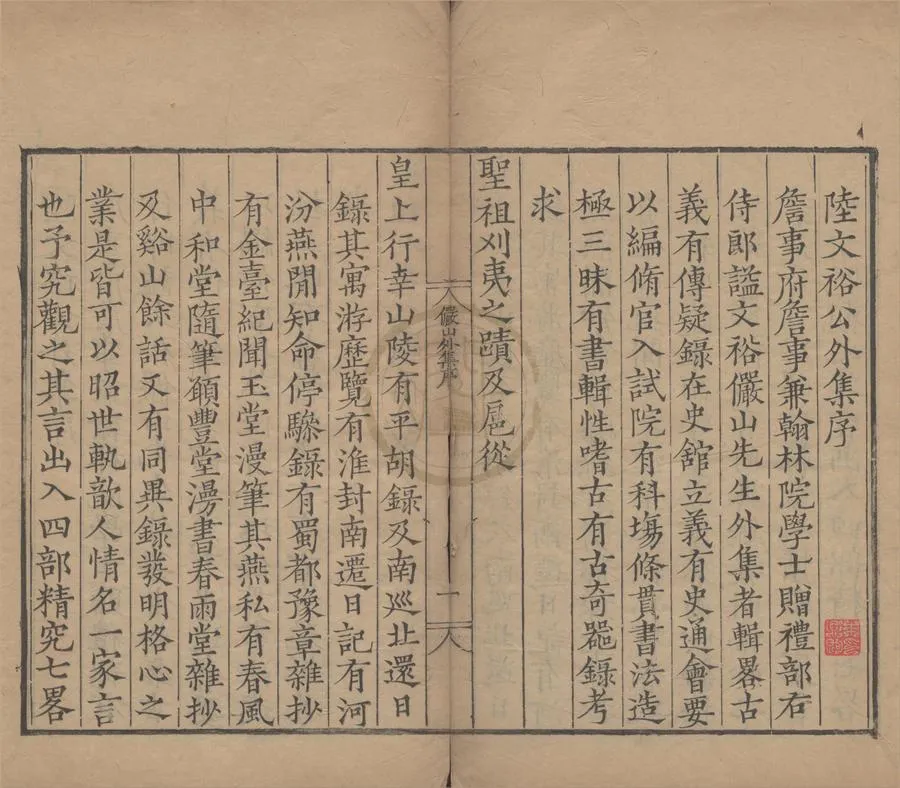 陸文裕公外集序
詹事府詹事兼翰林院學士贈禮部右
侍郎謚文裕儼山先生外集者輯畧古
義有傳疑錄在史舘立義有史通會要
以編脩官入試院有科塲條貫書法造
極三昧有書輯性嗜古有古奇噐錄考
求
聖祖刈夷之蹟及扈從
儼山外集序
一
皇上行幸山陵有平胡錄及南巡北還日
錄其寓游歷覽有淮封南遷日記有河
汾燕閒知命停驂錄有蜀都豫章雜抄
有金臺紀聞玉堂漫筆其燕私有春風
中和堂隨筆願豐堂漫書春雨堂雜抄
及谿山餘話又有同異錄發明格心之
業是皆可以昭世軌歆人情名一家言
也予究觀之其言出入四部精究七畧